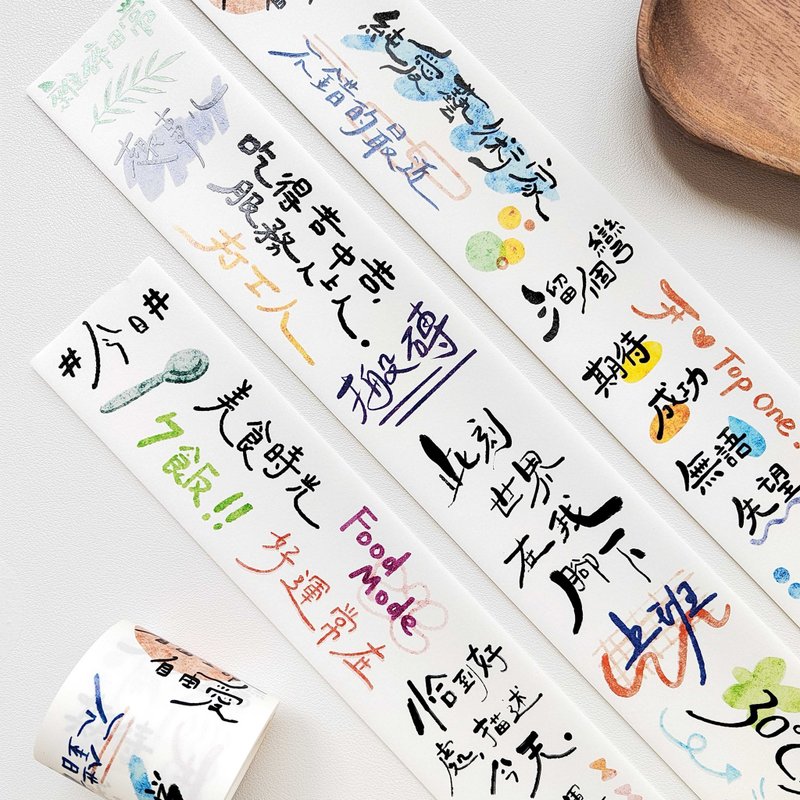 純愛藝術家
不錯的最近
留個彎
Top One!
期待
成功
無語
失望
吃得苦中苦,
服務人上人.
打工人
搬磚
此刻
世界
在我
腳下
上班
30°C
#今日#
美食時光
ㄘ飯!!
Food
Mode
好運常在
恰到好
處,描述
今天.
自由愛
不錯